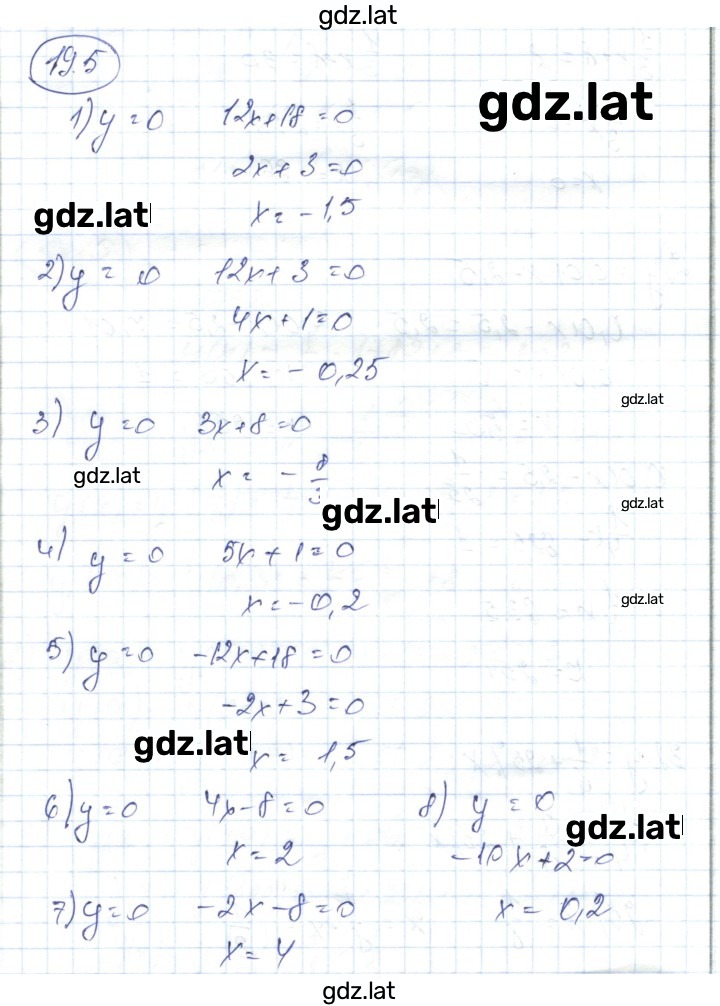 gdz.lat
19.5
gdz.lat
1) y = 0 12x+18 = 0
2x+3 = 0
x = -1,5
gdz.lat
2) y = 0 12x+3 = 0
4x+1 = 0
x = -0,25
gdz.lat
3) y = 0 3x+8 = 0
gdz.lat
x = -8/3
gdz.lat
gdz.lat
4) y = 0 5x+1 = 0
x = -0,2
gdz.lat
5) y = 0 -12x+18 = 0
-2x+3 = 0
gdz.lat
x = 1,5
6) y = 0 4x-8 = 0
x = 2
8) y = 0
gdz.lat
-10x+2=0
x = 0,2
7) y = 0 -2x-8 = 0
x = 4
gdz.lat